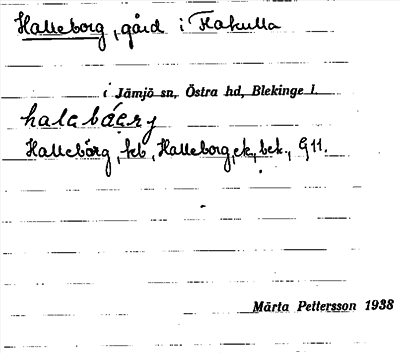 Halleborg, gård i Flakulla
i Jämjö sn, Östra hd, Blekinge l.
halabáerj
Halleborg, kb, Halleborg, ek, bek., G 11.
Märta Pettersson 1938